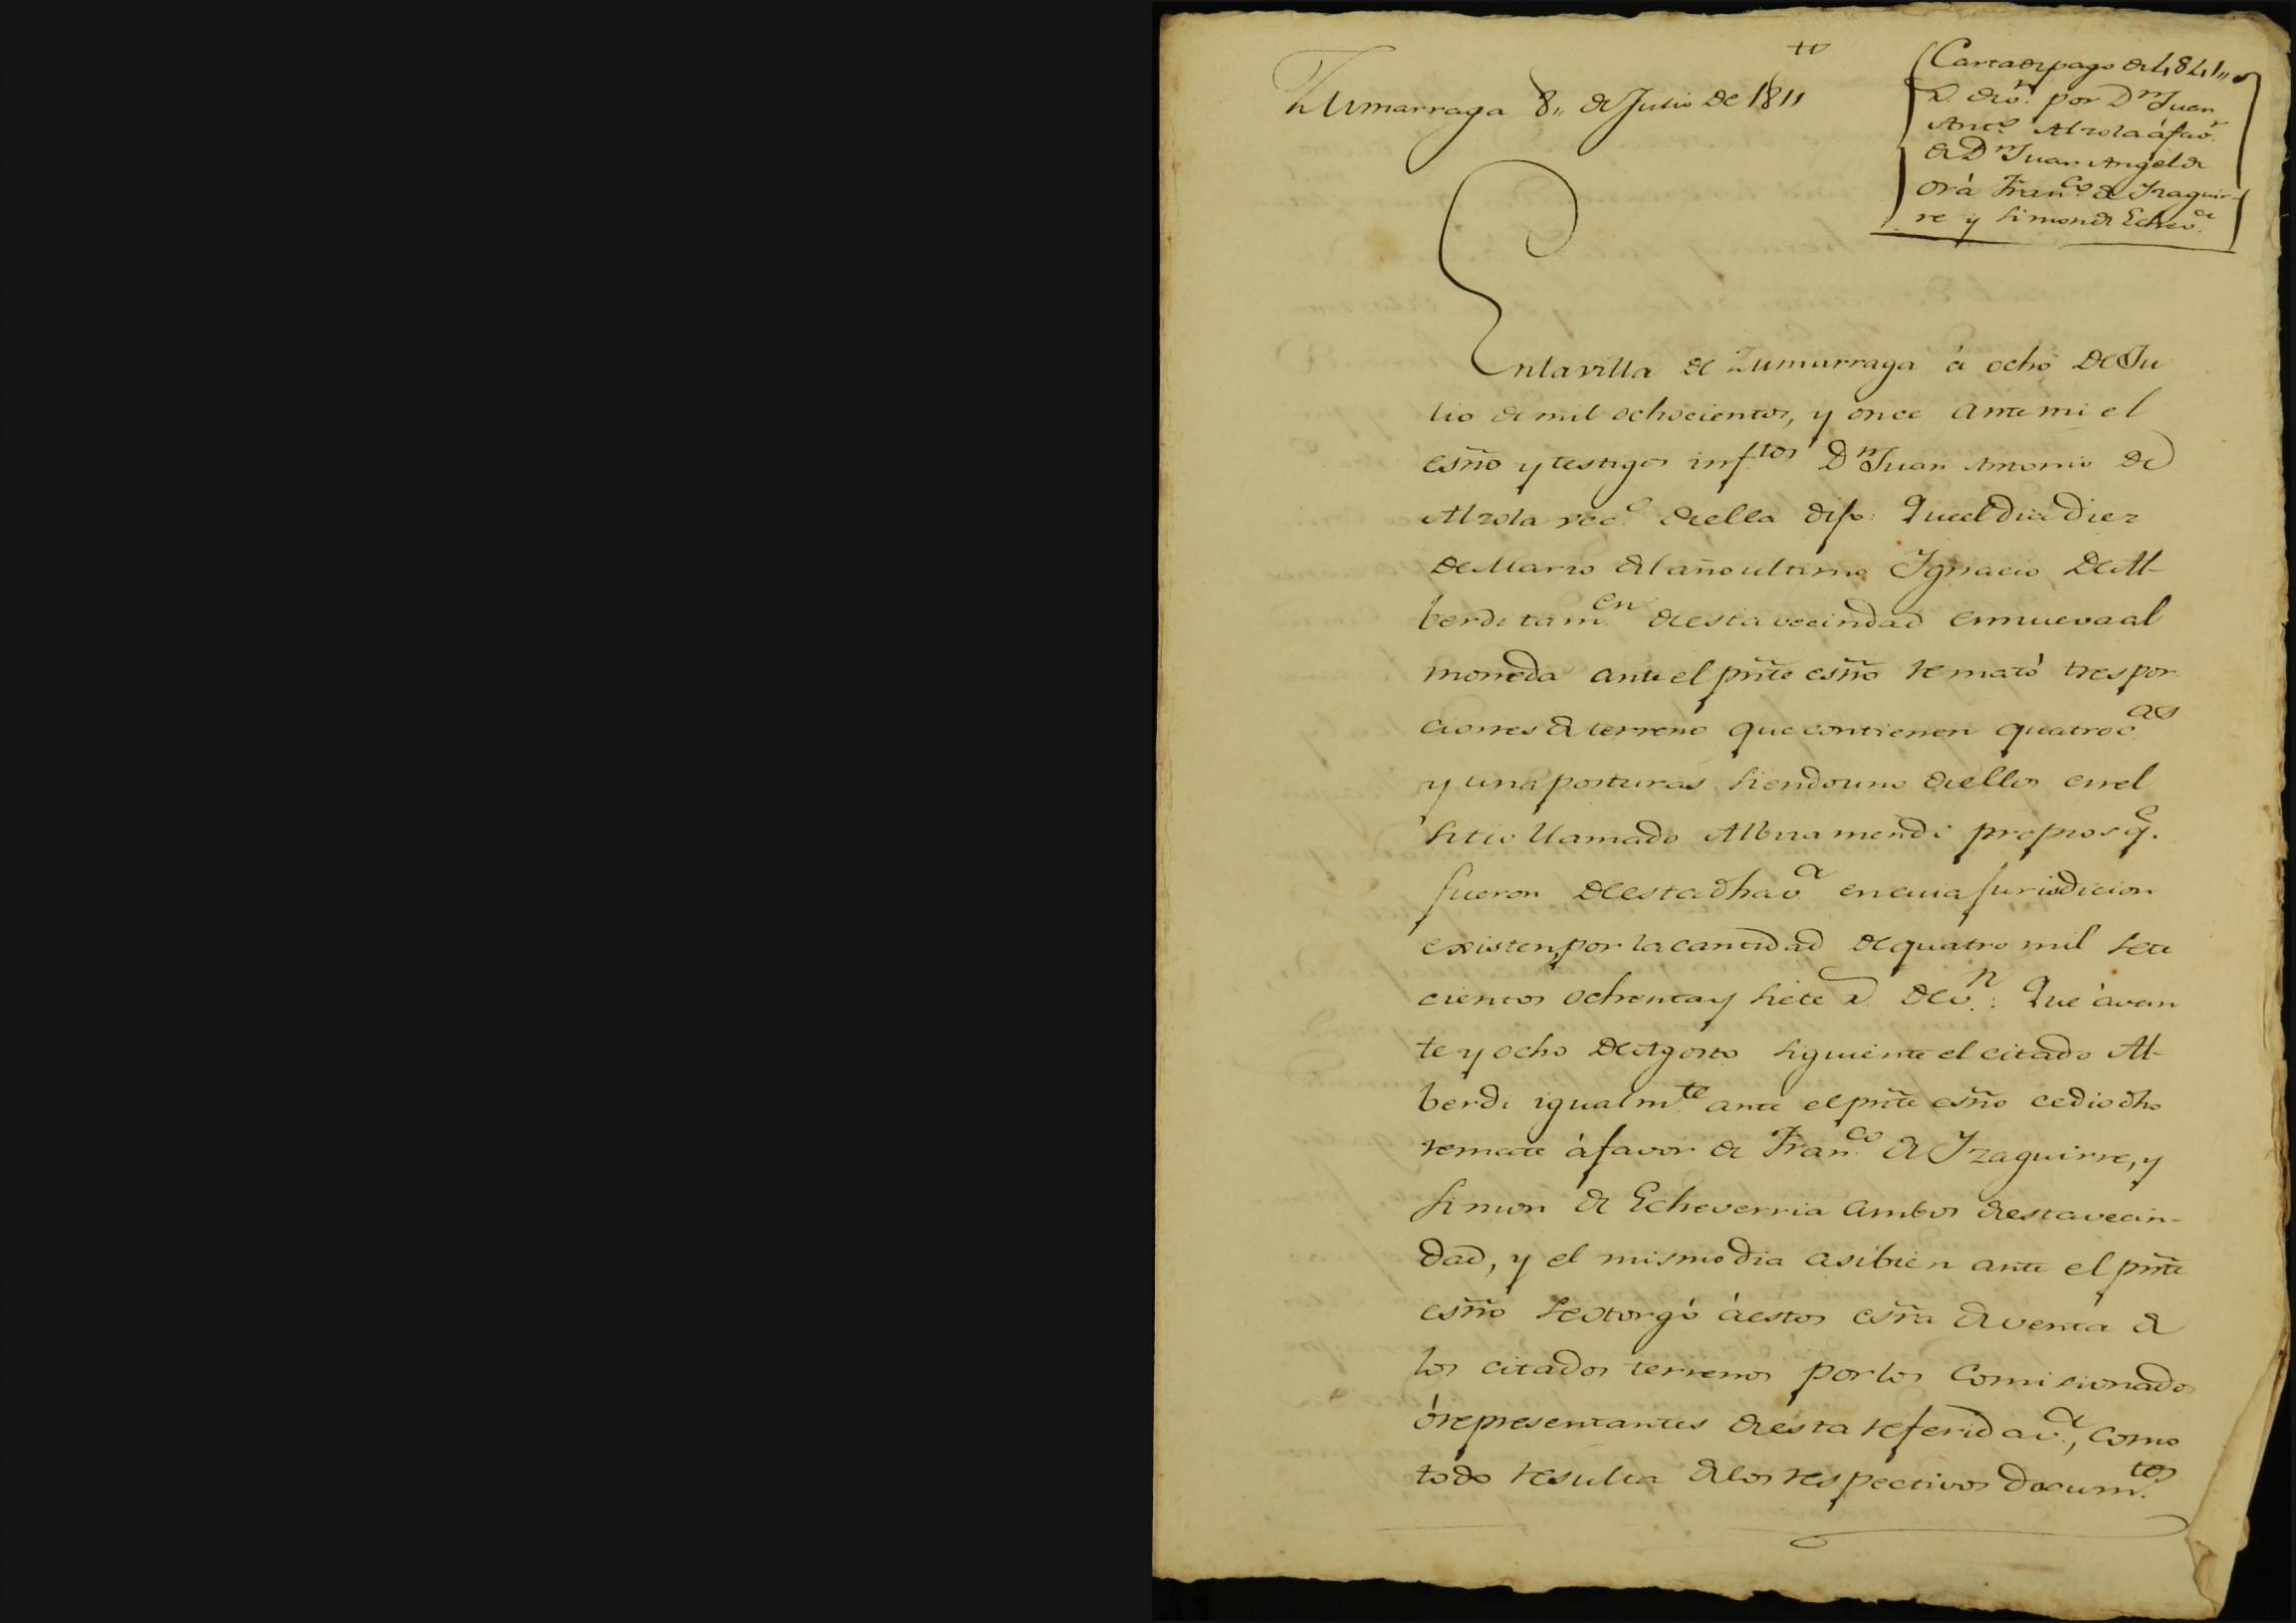 Zumarraga 8,, de Julio de 1811
Carta de pago de 4841,,
r.^s de v.^n por D.^n Juan
Ant.^o Alzola á fav.^r
de D.^n Juan Angel de
Orá Fran.^co de Izaguir-
re y Simon de Echev.^a
En la villa de Zumarraga á ocho de Ju
lio de mil ochocientos, y once ante mi el
esño y testigos inf.^tos D.^n Juan Antonio de
Alzola vec.^o de ella dijo: Que el dia diez
de Marzo del año ultimo Ignacio de Al-
berdi tam.^en de esta vecindad en nueva al
moneda ante el pñte esño remató tres por
ciones de terreno que contienen quatroc.^as
y una posturas siendo uno de ellos en el
sitio llamado Albiramendi propios q.^e
fueron de esta dha v.^a en cuia jurisdicion
existen, por la cantidad de quatro mil sete
cientos ochenta y siete r.^s de v.^n: Que á vein
te y ocho de Agosto siguiente el citado Al-
berdi igualm.^te ante el pñte esño cedio dho
remate á favor de Fran.^co de Izaguirre, y
Simon de Echeverria ambos de esta vecin-
dad, y el mismo dia asibien ante el pñte
esño se otorgó á estos esrã de venta de
los citados terrenos por los Comisionados
ó representantes de esta referida v.^a, como
todo resulta de los respectivos docum.^tos